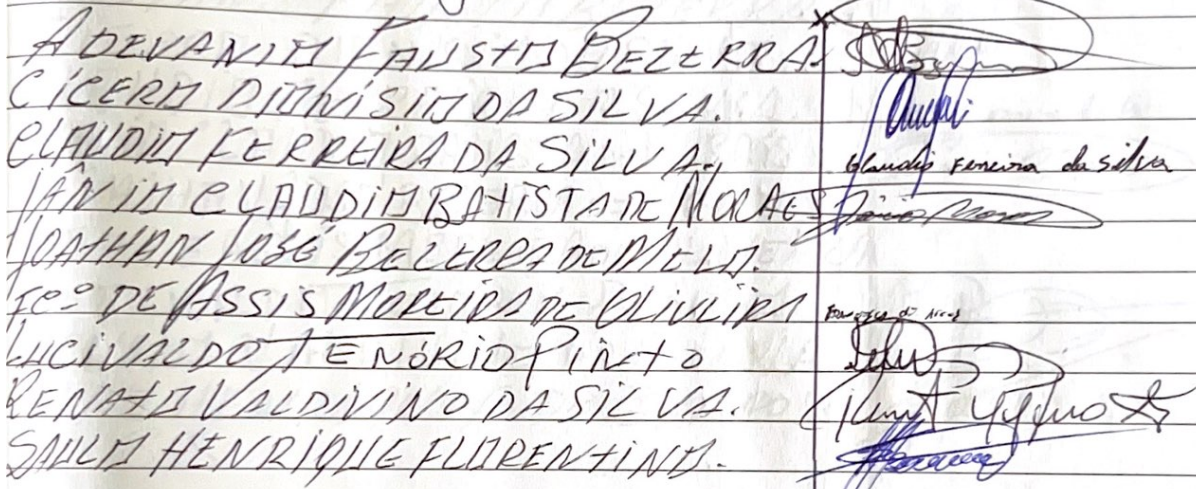 ADEVANIO FAUSTO BEZERRA.
CÍCERO DIONISIO DA SILVA.
CLAUDIO FERREIRA DA SILVA. Claudio Ferreira da Silva
JÂNIO CLAUDIO BATISTA DE MORAES
JOATHAN JOSÉ BEZERRA DE MELO.
Fcº DE ASSIS MOREIRA DE OLIVEIRA Francisco de Assis
LUCIVALDO TENÓRIO PINTO
RENATO VALDIVINO DA SILVA.
SAULO HENRIQUE FLORENTINO.